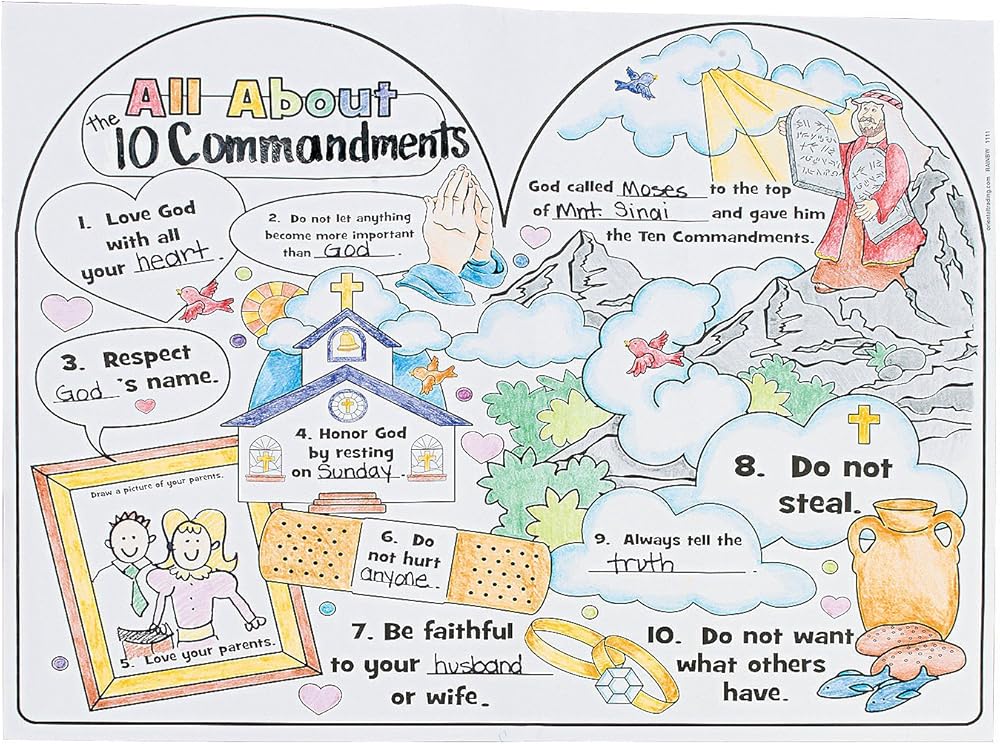 All About
the 10 Commandments
1. Love God
with all
your heart.
2. Do not let anything
become more important
than God.
3. Respect
God's name.
4. Honor God
by resting
on Sunday.
Draw a picture of your parents.
5. Love your parents.
6. Do
not hurt
anyone.
7. Be faithful
to your husband
or wife.
God called Moses to the top
of Mnt. Sinai and gave him
the Ten Commandments.
8. Do not
steal.
9. Always tell the
truth.
10. Do not want
what others
have.
orientaltrading.com RAINBW 1111